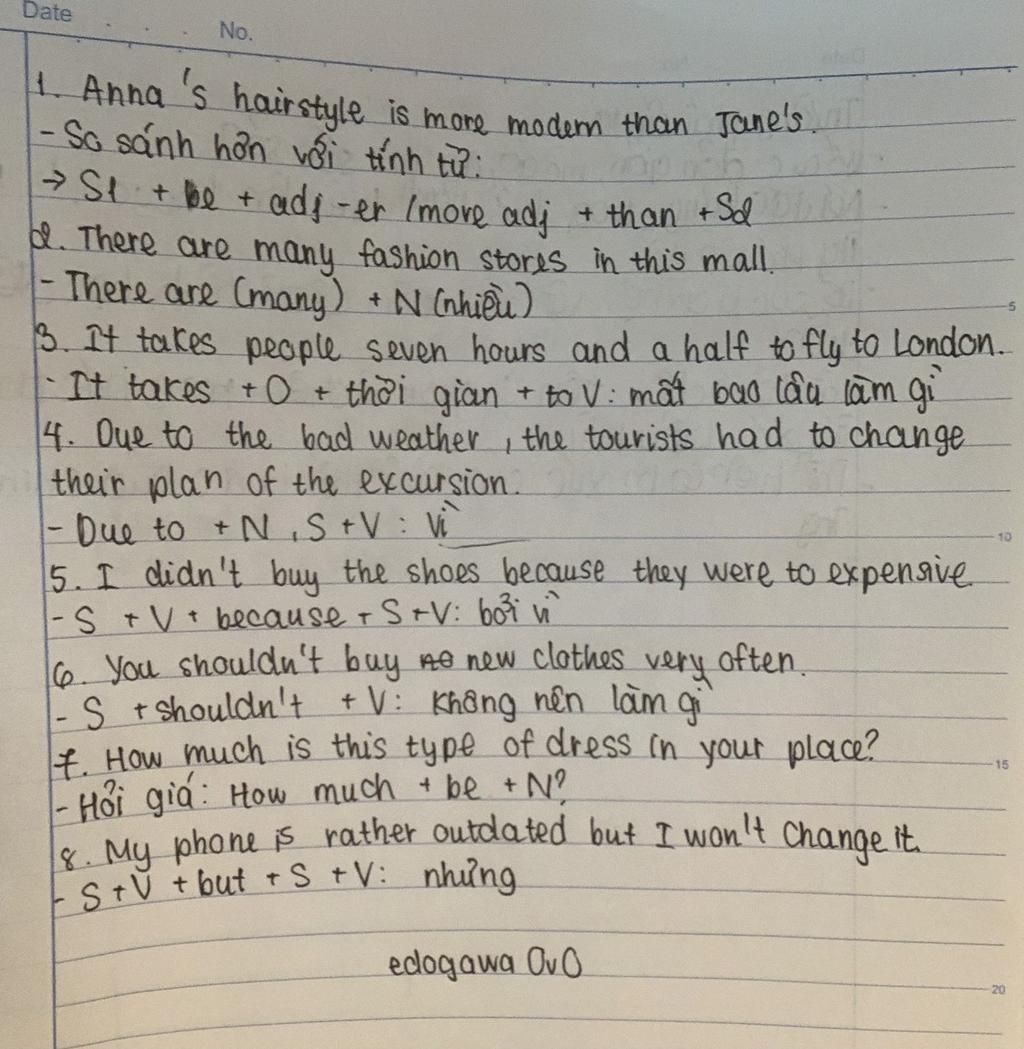 Date
No.
1. Anna's hairstyle is more modern than Jane's.
- So sánh hơn với tính từ:
→ S1 + be + adj-er /more adj + than + S2
2. There are many fashion stores in this mall.
- There are (many) + N (nhiều)
5
3. It takes people seven hours and a half to fly to London.
- It takes + O + thời gian + to V: mất bao lâu làm gì
4. Due to the bad weather, the tourists had to change
their plan of the excursion.
- Due to + N, S + V: Vì
10
5. I didn't buy the shoes because they were to expensive
- S + V + because + S + V: bởi vì
6. You shouldn't buy new clothes very often.
- S + shouldn't + V: Không nên làm gì
7. How much is this type of dress in your place?
15
- Hỏi giá: How much + be + N?
8. My phone is rather outdated but I won't change it.
- S + V + but + S + V: nhưng
edogawa OvO
20